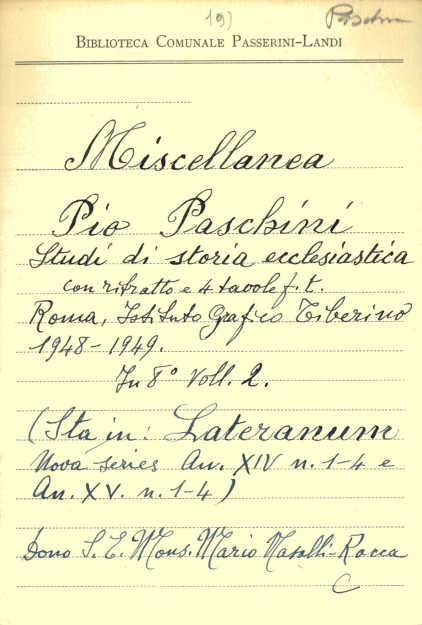 19)
Paschini
BIBLIOTECA COMUNALE PASSERINI-LANDI
Miscellanea
Pio Paschini
Studi di storia ecclesiastica
con ritratto e 4 tavole f. t.
Roma, Istituto Grafico Tiberino
1948-1949.
In 8° voll. 2.
(Sta in: Lateranum
Nova series An. XIV n. 1-4 e
An. XV. n. 1-4)
Dono S. E. Mons. Mario Nasalli-Rocca